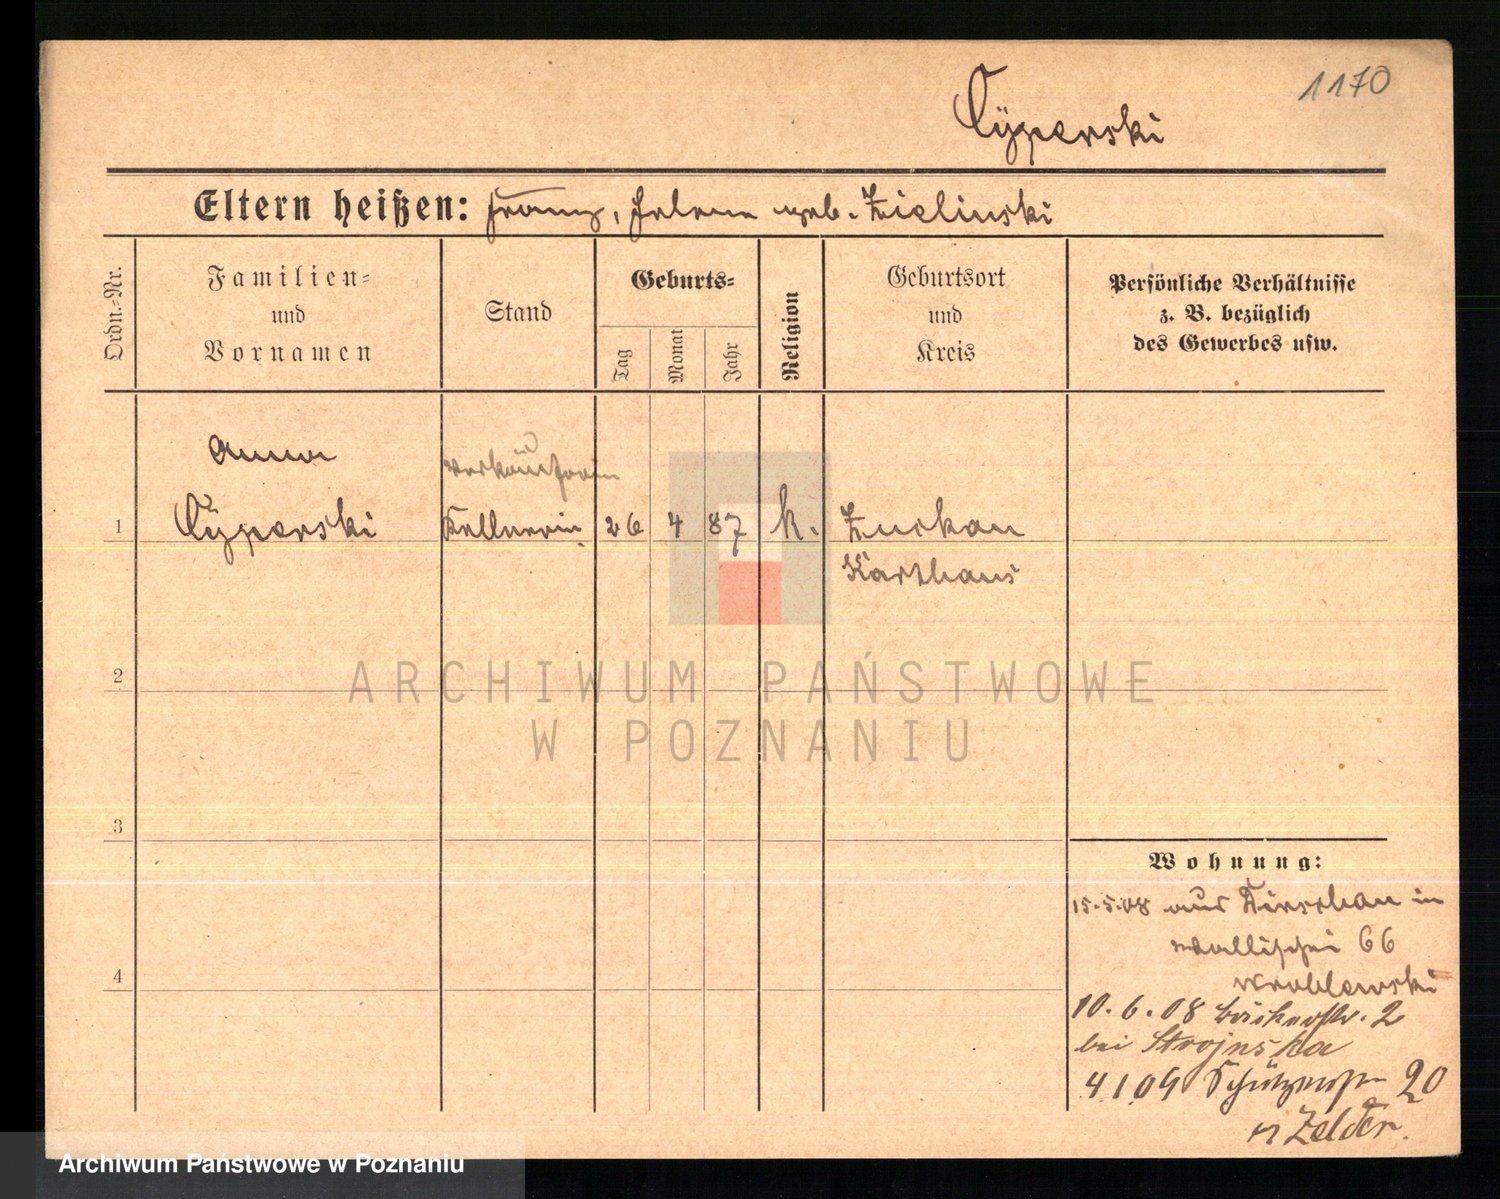 1170
Cÿperski
Eltern heißen: Franz, Helene geb. Zielinski
Ordn.-Nr.
Familien-
und
Vornamen
Stand
Geburts-
Tag
Monat
Jahr
Religion
Geburtsort
und
Kreis
Persönliche Verhältnisse
z. B. bezüglich
des Gewerbes usw.
Anna
Verkäuferin
1 Cÿperski Kellnerin 26 4 87 k. Zuckau
Karthaus
2
ARCHIWUM PAŃSTWOWE
W POZNANIU
3
Wohnung:
15.5.08 aus Dirschau in
Wallischei 66
Wroblewski
4
10.6.08 Bäckerstr. 2
bei Strojnska
4 1 09 Schützenstr 20
Zelder.
Archiwum Państwowe w Poznaniu